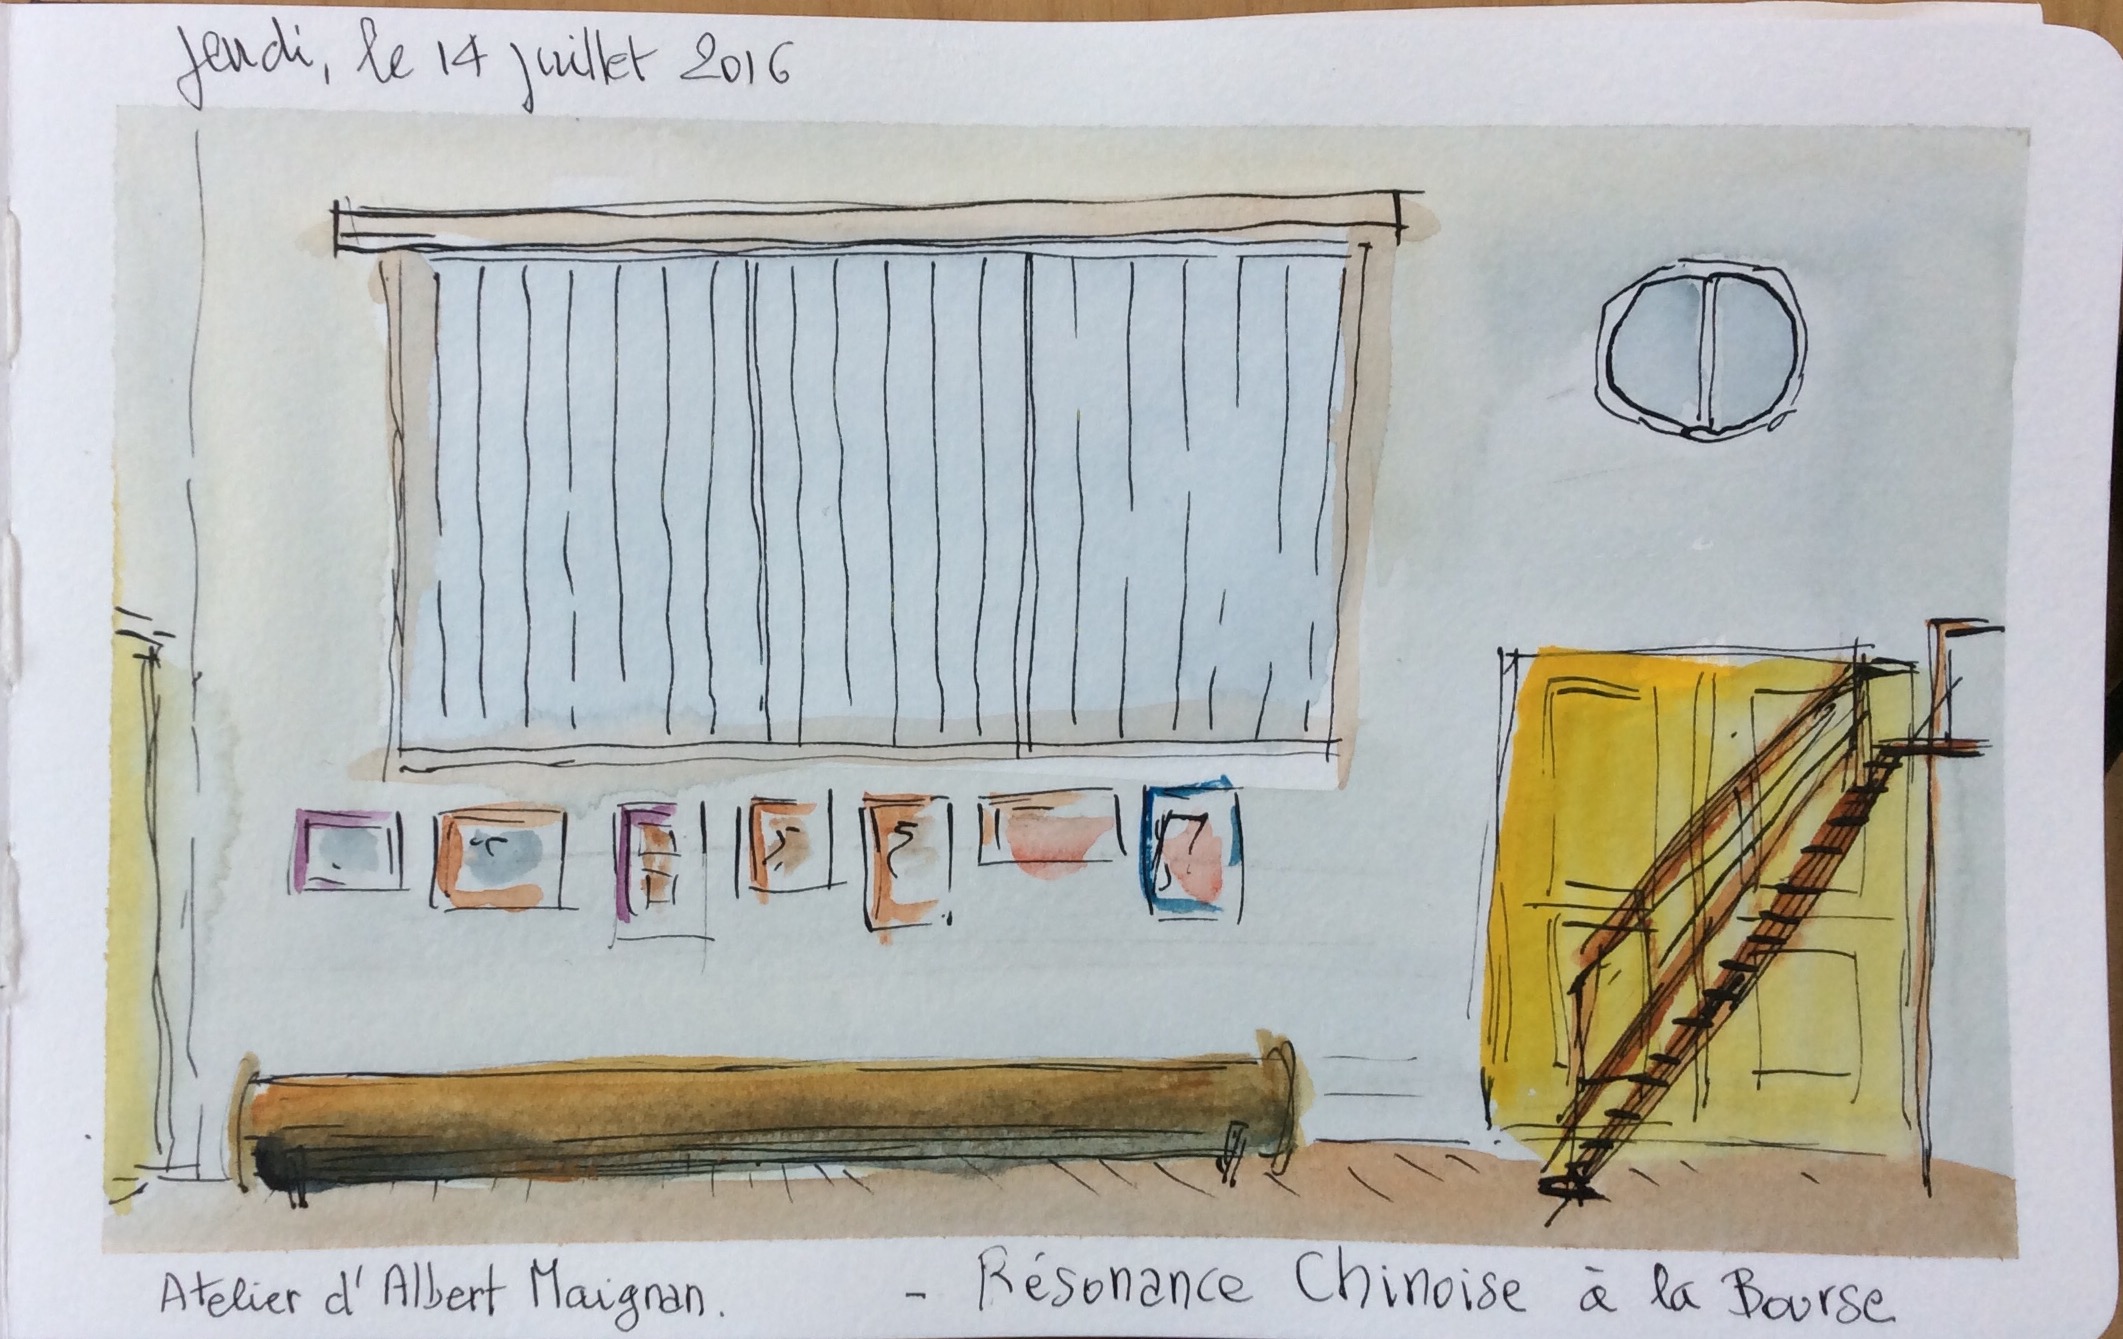 Jeudi, le 14 juillet 2016
Atelier d'Albert Maignan. - Résonance Chinoise à la Bourse